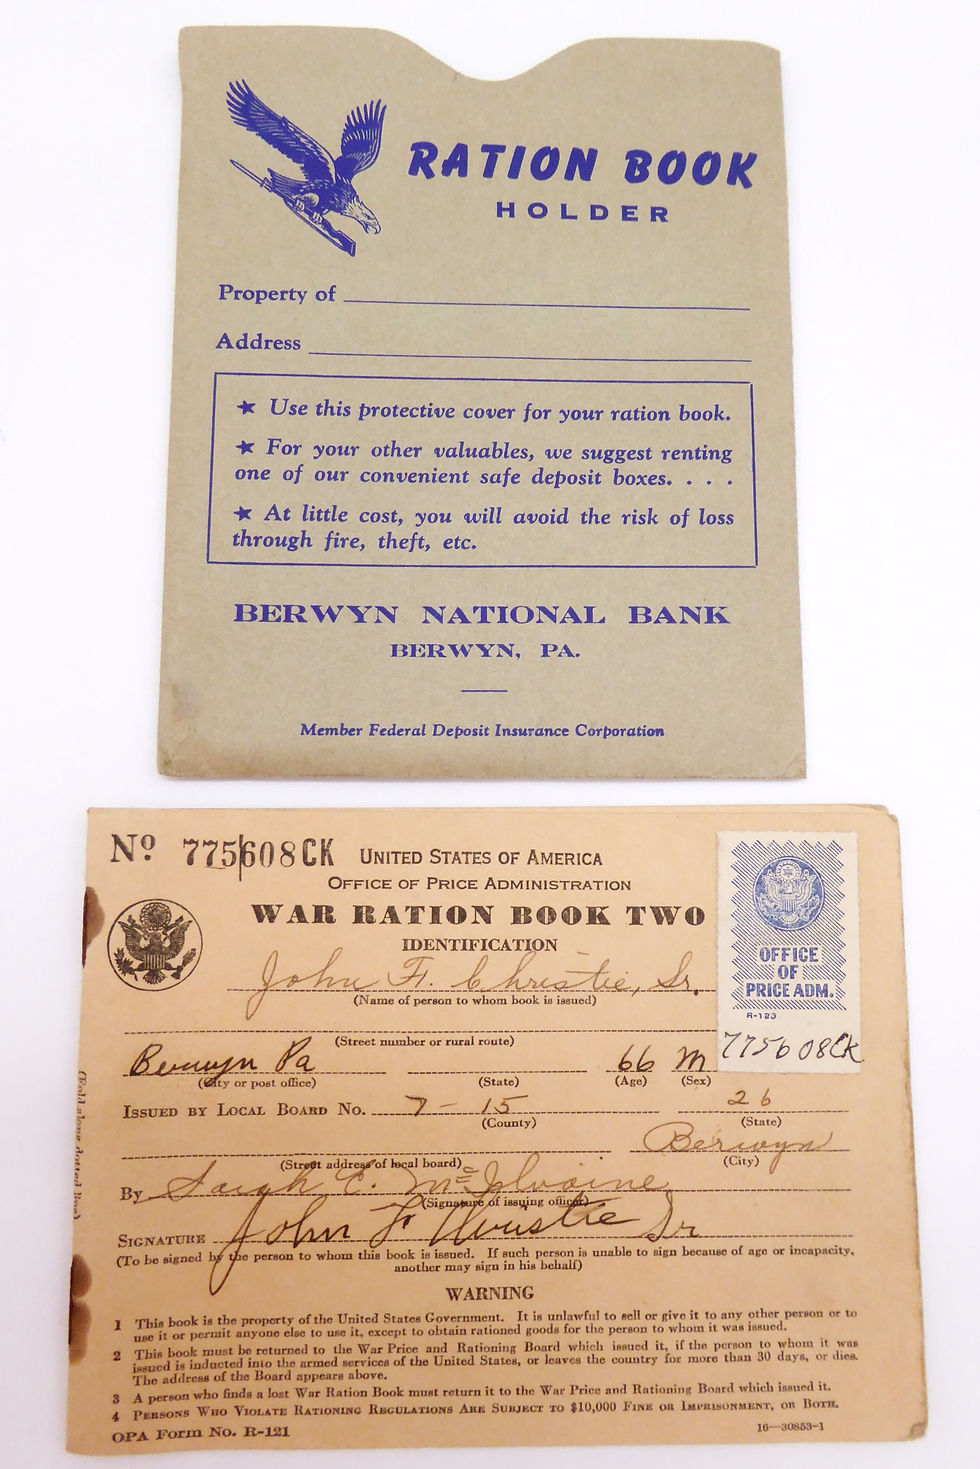 RATION BOOK
HOLDER
Property of
Address
★ Use this protective cover for your ration book.
★ For your other valuables, we suggest renting
one of our convenient safe deposit boxes. . . .
★ At little cost, you will avoid the risk of loss
through fire, theft, etc.
BERWYN NATIONAL BANK
BERWYN, PA.
Member Federal Deposit Insurance Corporation
Nº 775608CK
UNITED STATES OF AMERICA
OFFICE OF PRICE ADMINISTRATION
WAR RATION BOOK TWO
IDENTIFICATION
John F. Christie, Sr.
(Name of person to whom book is issued)
OFFICE
OF
PRICE ADM.
R-123
775608CK
(Street number or rural route)
Berwyn Pa 66 M
(City or post office) (State) (Age) (Sex)
ISSUED BY LOCAL BOARD NO. 7-15 26
(County) (State)
Berwyn
(Street address of local board) (City)
By Sarah E. McIlvaine
(Signature of issuing officer)
SIGNATURE John F Christie Sr
(To be signed by the person to whom this book is issued. If such person is unable to sign because of age or incapacity,
another may sign in his behalf)
WARNING
1 This book is the property of the United States Government. It is unlawful to sell or give it to any other person or to
use it or permit anyone else to use it, except to obtain rationed goods for the person to whom it was issued.
2 This book must be returned to the War Price and Rationing Board which issued it, if the person to whom it was
issued is inducted into the armed services of the United States, or leaves the country for more than 30 days, or dies.
The address of the Board appears above.
3 A person who finds a lost War Ration Book must return it to the War Price and Rationing Board which issued it.
4 PERSONS WHO VIOLATE RATIONING REGULATIONS ARE SUBJECT TO $10,000 FINE OR IMPRISONMENT, OR BOTH.
OPA Form No. R-121
16—30853-1
(Fold along dotted line)